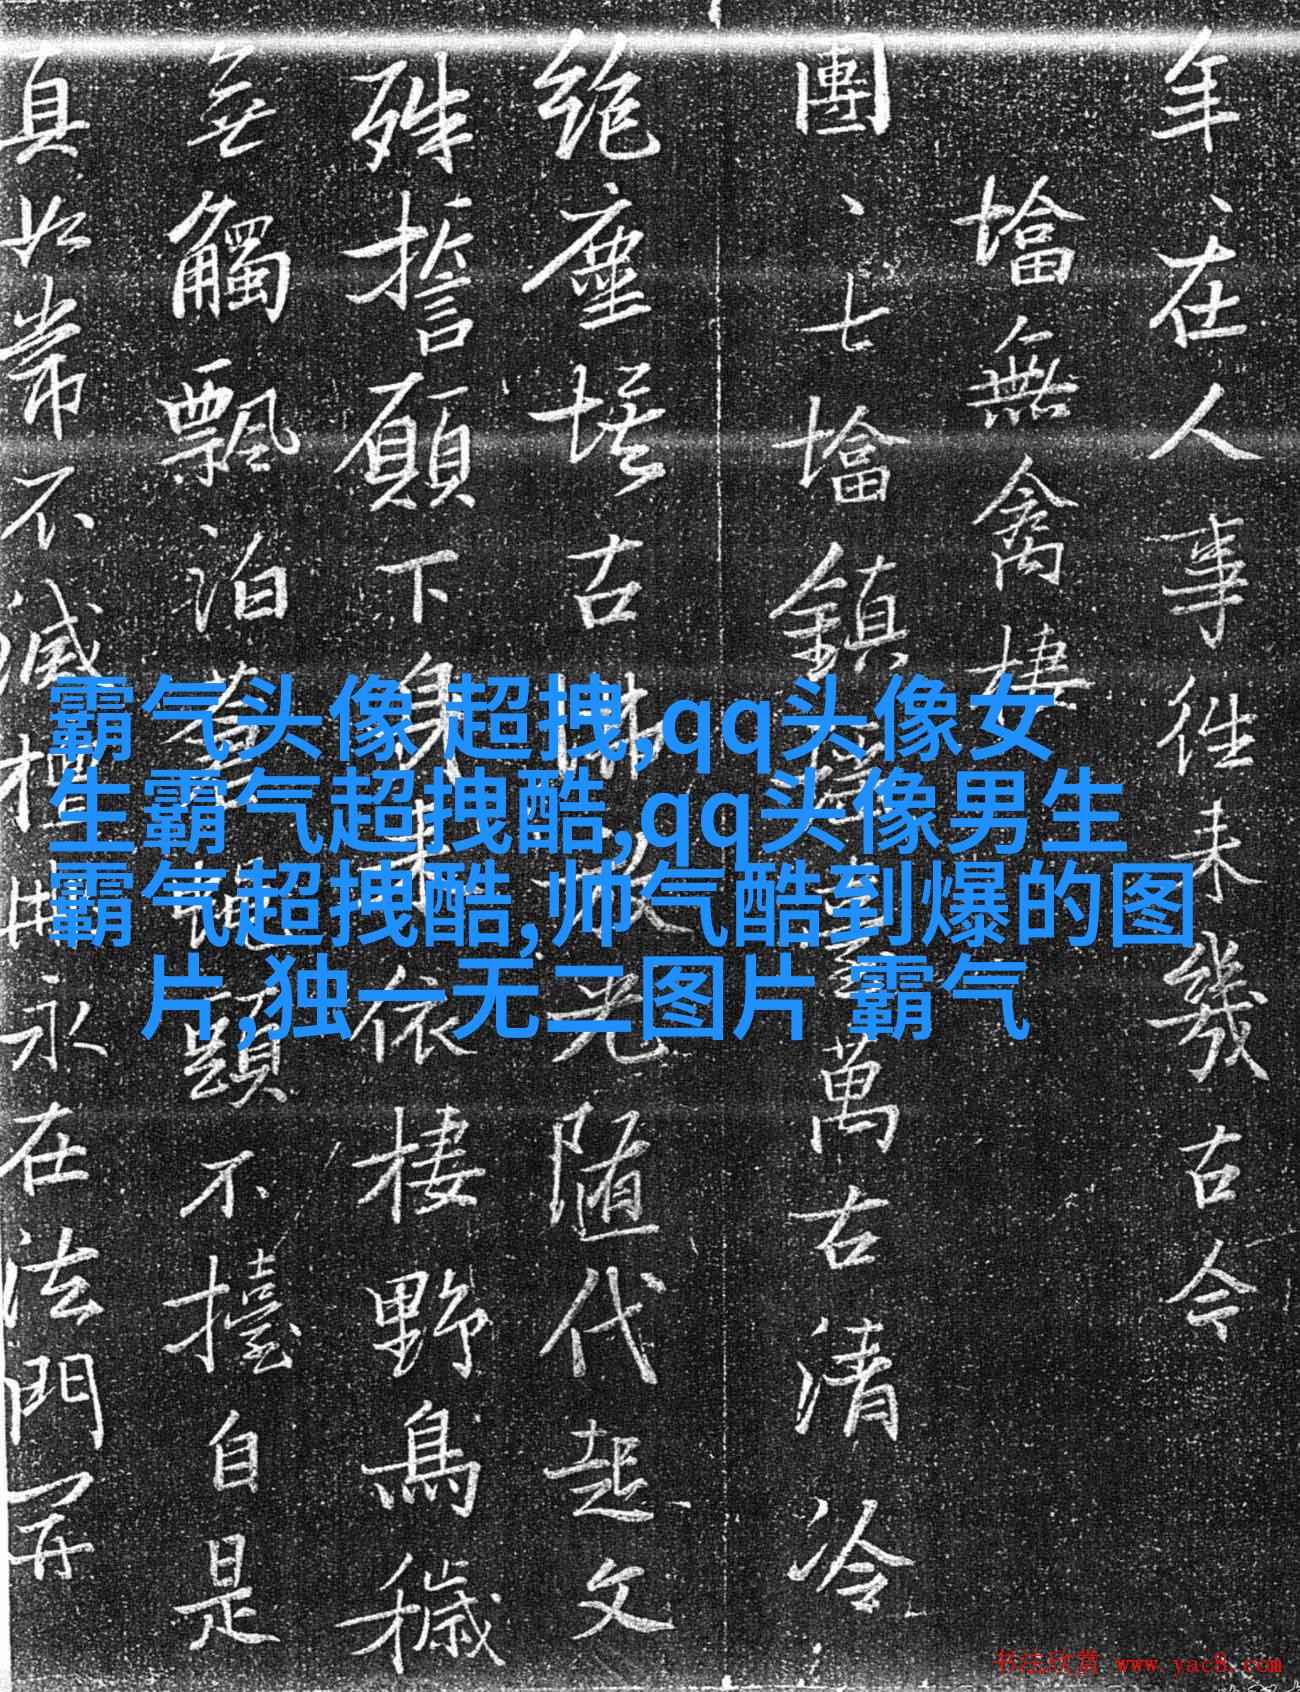 年、在人事往未幾古今
墖無禽棲
團、七墖鎮
萬古清冷
絶塵埃古
光随代起文
殊誓願下身
依棲野鳥穢
無觸飄泊
題不擡自是
真如常不滅
永在法門開
霸气头像 超拽,qq头像女
生霸气超拽酷,qq头像男生
霸气超拽酷,帅气酷到爆的图
片,独一无二图片 霸气
书法欣赏 www.yac8.com